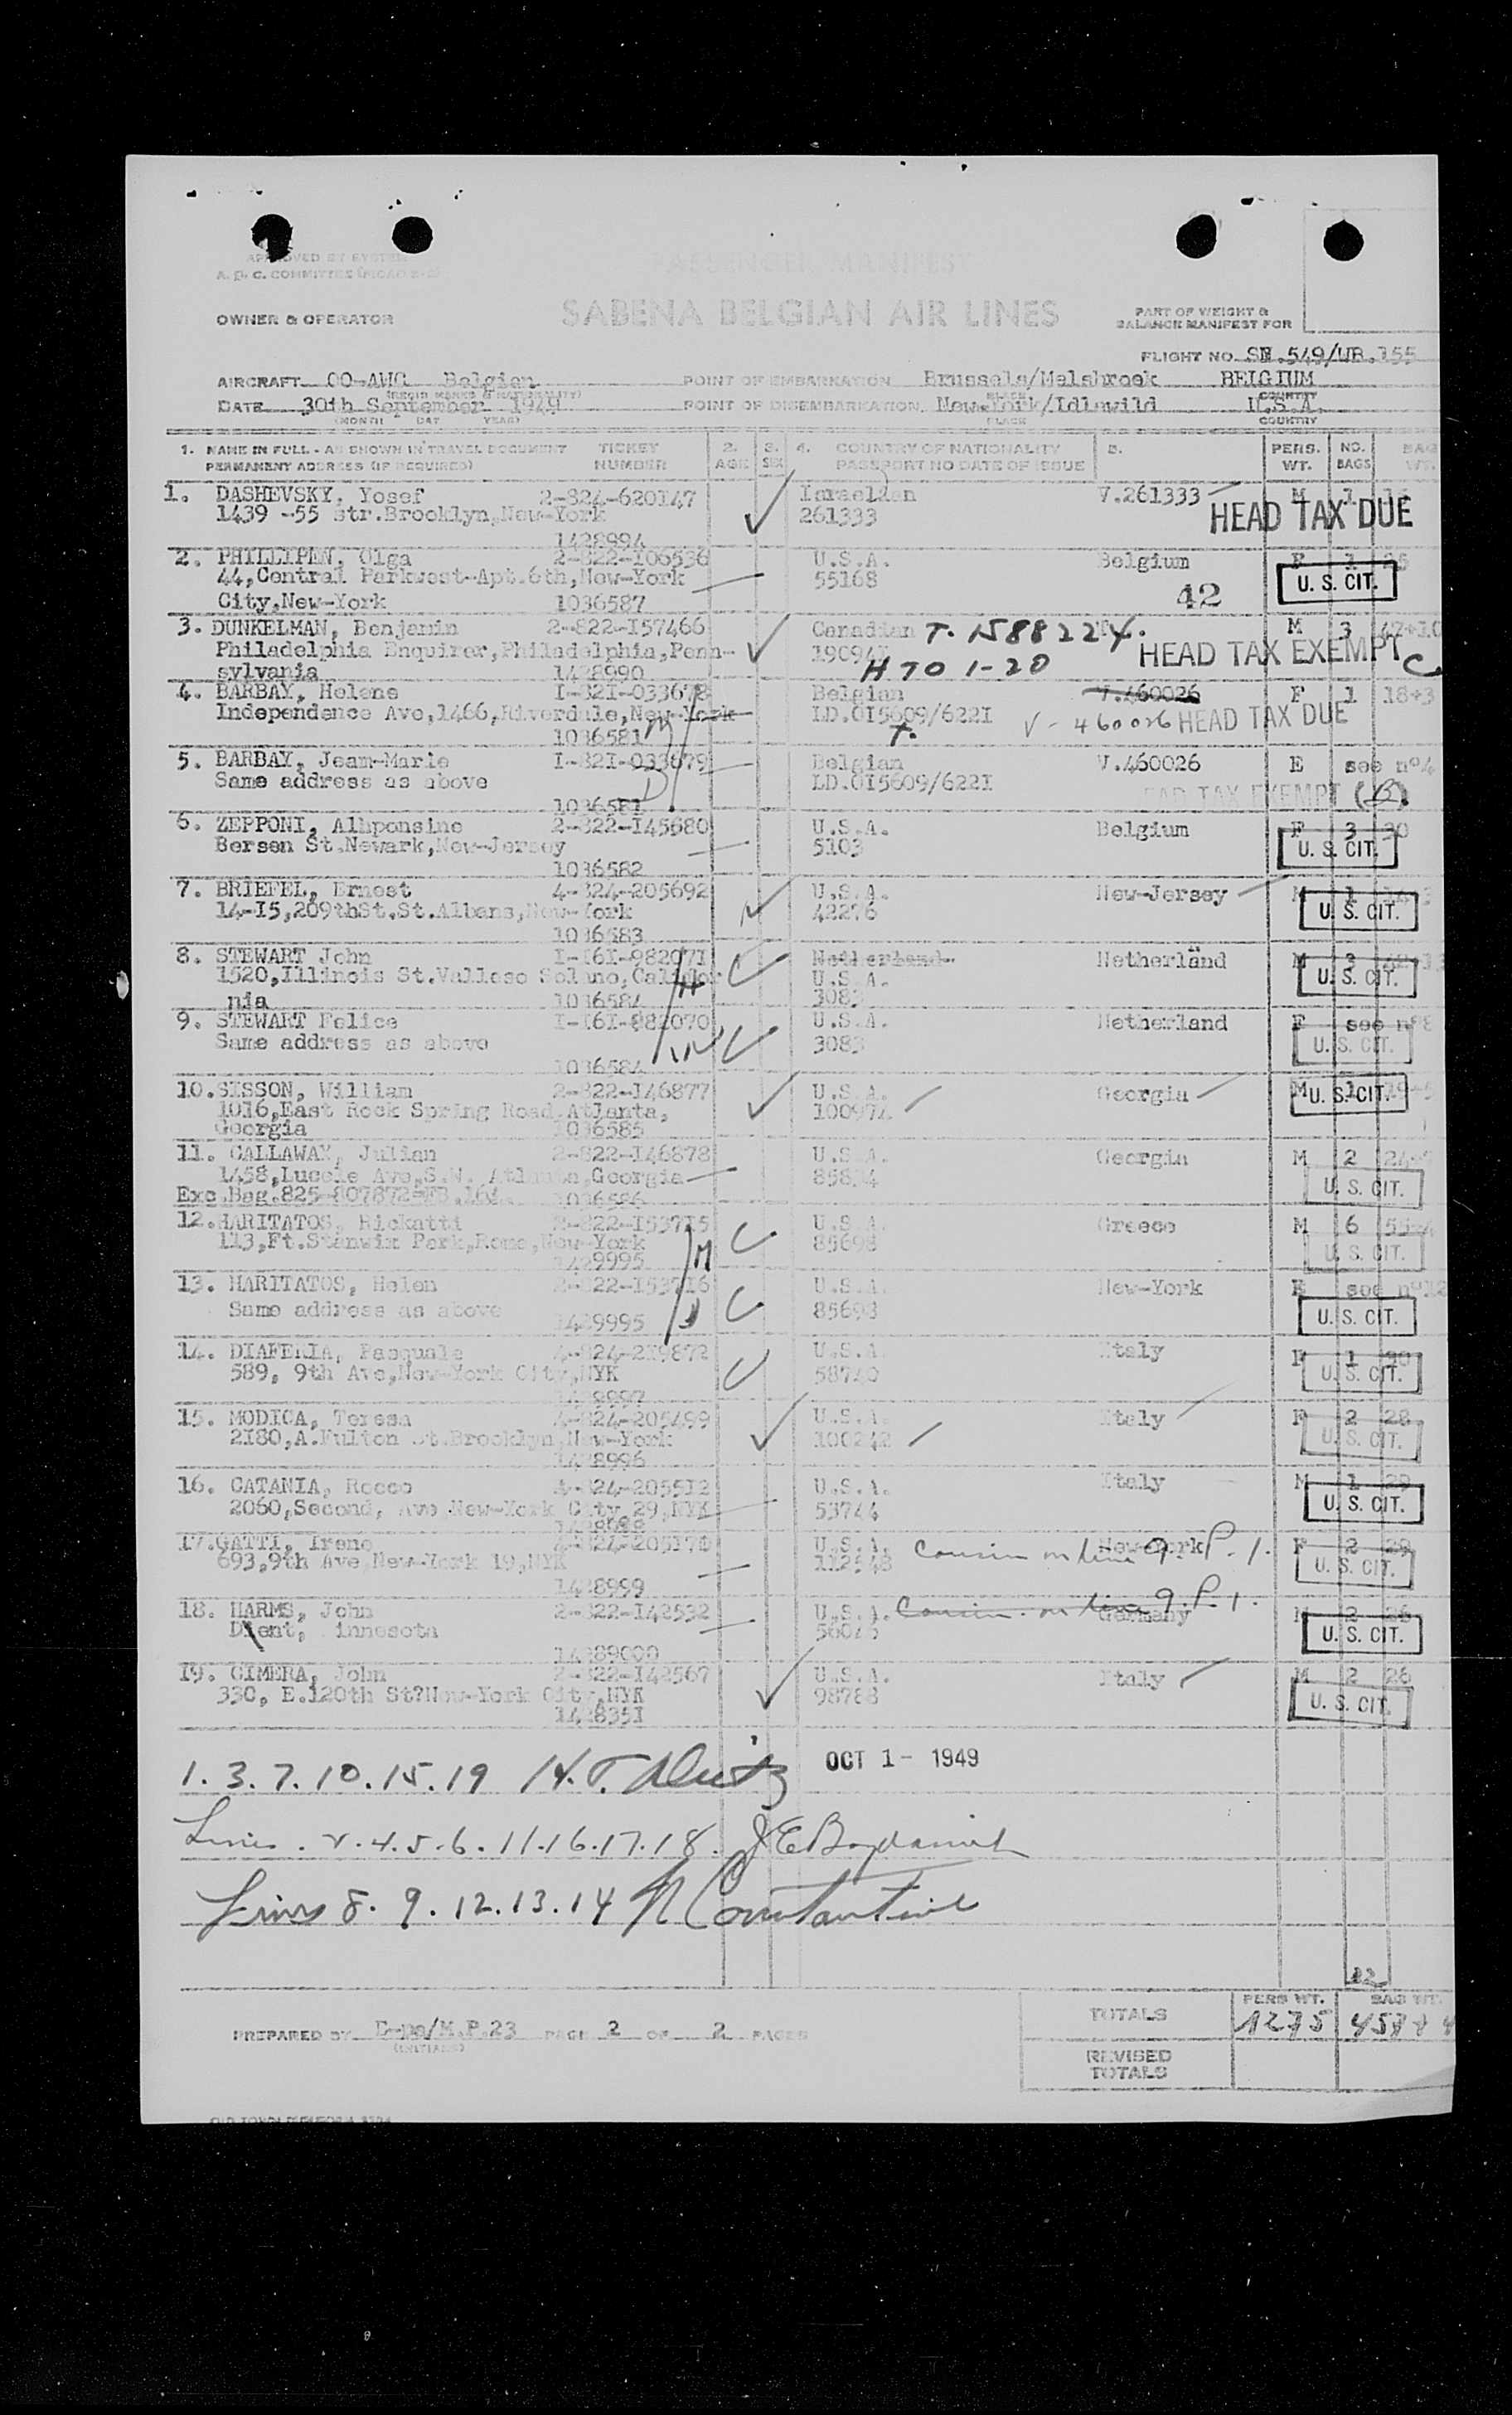 PASSENGER MANIFEST
A. D. C. COMMITTEE
SABENA BELGIAN AIR LINES
OWNER & OPERATOR
PART OF WEIGHT &
BALANCE MANIFEST FOR
FLIGHT NO. SN.549/UB.155
AIRCRAFT OO-AWC Belgian POINT OF EMBARKATION Brussels/Melsbroek BELGIUM
DATE 30th September 1949 POINT OF DISEMBARKATION New-York/Idlewild U.S.A.
(MONTH DAY YEAR) PLACE COUNTRY
1. NAME IN FULL - AS SHOWN IN TRAVEL DOCUMENT TICKET 2. 3. 4. COUNTRY OF NATIONALITY 5. PERS. NO. BAG
PERMANENT ADDRESS (IF REQUIRED) NUMBER AGE SEX PASSPORT NO DATE OF ISSUE WT. BAGS WT.
1. DASHEVSKY, Yosef 2-824-620147 Israelian V.261333 M 1
1439 -55 str.Brooklyn,New-York 261333 HEAD TAX DUE
1428994
2. PHILLIPEN, Olga 2-822-106536 U.S.A. Belgium F 1
44,Central Parkwest-Apt.6th,New-York 55168 U. S. CIT.
City,New-York 1036587 42
3. DUNKELMAN, Benjamin 2-822-I57466 Canadian T. 1588224. M 3 47+10
Philadelphia Enquirer,Philadelphia,Penn- 19094I HEAD TAX EXEMPT C
sylvania 1428990 H 70 1-20
4. BARBAY, Helene I-82I-033678 Belgian V.460026 F 1 18+3
Independence Ave,1466,Riverdale,New-York LD.0I5609/622I V-460026 HEAD TAX DUE
1036581 M T.
5. BARBAY, Jean-Marie I-82I-033679 Belgian V.460026 E see n°4
Same address as above LD.0I5609/622I HEAD TAX EXEMPT (B)
1036581 D
6. ZEPPONI, Alhponsine 2-822-I45680 U.S.A. Belgium F 3 30
Bersen St.Newark,New-Jersey 5103 U. S. CIT.
1036582
7. BRIEFEL, Ernest 4-824-205692 U.S.A. New-Jersey M 1
14-I5,209thSt.St.Albans,New-York 42276 U. S. CIT.
1036583
8. STEWART John I-I6I-982071 Netherland Netherland M 3
1520,Illinois St.Vallese Solano,Califor U.S.A. U. S. CIT.
nia 1036584 H 3083
9. STEWART Felice I-I6I-982070 U.S.A. Netherland F see n°8
Same address as above 3083 U. S. CIT.
1036584 W
10. SISSON, William 2-822-I46877 U.S.A. Georgia M 1
1016,East Rock Spring Road.Atlanta, 100974 U. S. CIT.
Georgia 1036585
11. CALLAWAY, Julian 2-822-I46878 U.S.A. Georgia M 2
1458,Lucele Ave,S.W. Atlanta,Georgia U. S. CIT.
Exc.Bag.825-807872 1036586
12. HARITATOS, Rickatti 2-822-I53715 U.S.A. Greece M 6
113,Ft.Stanwix Park,Rome,New-York 85698 U. S. CIT.
1429995 M
13. HARITATOS, Helen 2-822-I53716 U.S.A. New-York E see n°12
Same address as above 85698 U. S. CIT.
1429995 D
14. DIAFERIA, Pasquale 4-824-219872 U.S.A. Italy F 1 30
589, 9th Ave,New-York City,NYK 58740 U. S. CIT.
1428997
15. MODICA, Teresa 4-824-205499 U.S.A. Italy F 2 28
2I80,A.Fulton St.Brooklyn,New-York 100242 U. S. CIT.
1428996
16. CATANIA, Rocco 4-824-205512 U.S.A. Italy M 1 29
2060,Second, Ave New-York City 29,NYK 53744 U. S. CIT.
17. GATTI, Irene 4-824-205170 U.S.A. Cousin on line 9. P.1. New-York F 2 29
693,9th Ave,New-York 19,NYK 112548 U. S. CIT.
1428999
18. HARMS, John 2-822-I42532 U.S.A. Cousin on line 9. P. 1. Germany M 2 26
Dent, innesota U. S. CIT.
14289000
19. CIMERA, John 2-822-I42567 U.S.A. Italy M 2 26
330, E.120th St?New-York City,NYK 98788 U. S. CIT.
142835I
1. 3. 7. 10. 15. 19 OCT 1 - 1949
Lines. 2. 4. 5. 6. 11. 16. 17. 18.
Lines 8. 9. 12. 13. 14 Constantine
TOTALS PERS WT. 1275 BAG WT.
PREPARED BY PAGE 2 OF 2 PAGES
(INITIALS)
REVISED
TOTALS